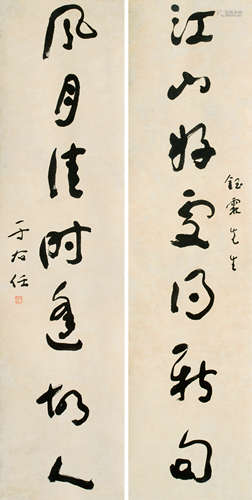 江山好處得新句
鈺霖先生
風月佳時逢故人
于右任